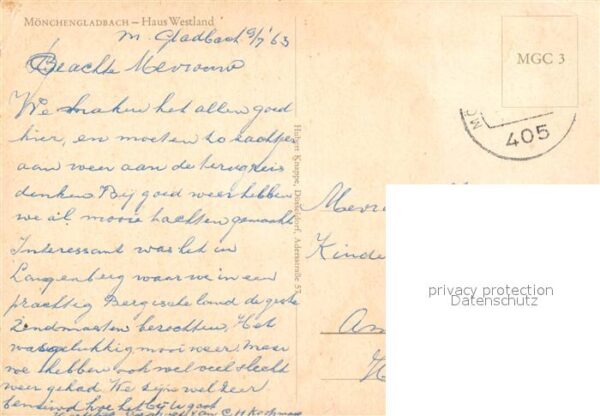 MÖNCHENGLADBACH – Haus Westland
M. Gladbach 9/7 '63
Beachte Mevrouw
We maken het allen goed
hier, en moeten zo zachtjes
aan weer aan de terugreis
denken. Bij goed weer hebben
we al mooie tochten gemaakt
Interessant was het in
Langenberg waar we in een
prachtig Bergische land de grote
Zendmasten bezochten. Het
was gelukkig mooi weer. Maar
we hebben ook wel veel slecht
weer gehad. We zijn wel zeer
benieuwd hoe het bij U gaat
van C H Kochman
Hubert Knappe, Düsseldorf, Adersstraße 57
MGC 3
405
Mevr
Kinde
Am
H
privacy protection
Datenschutz